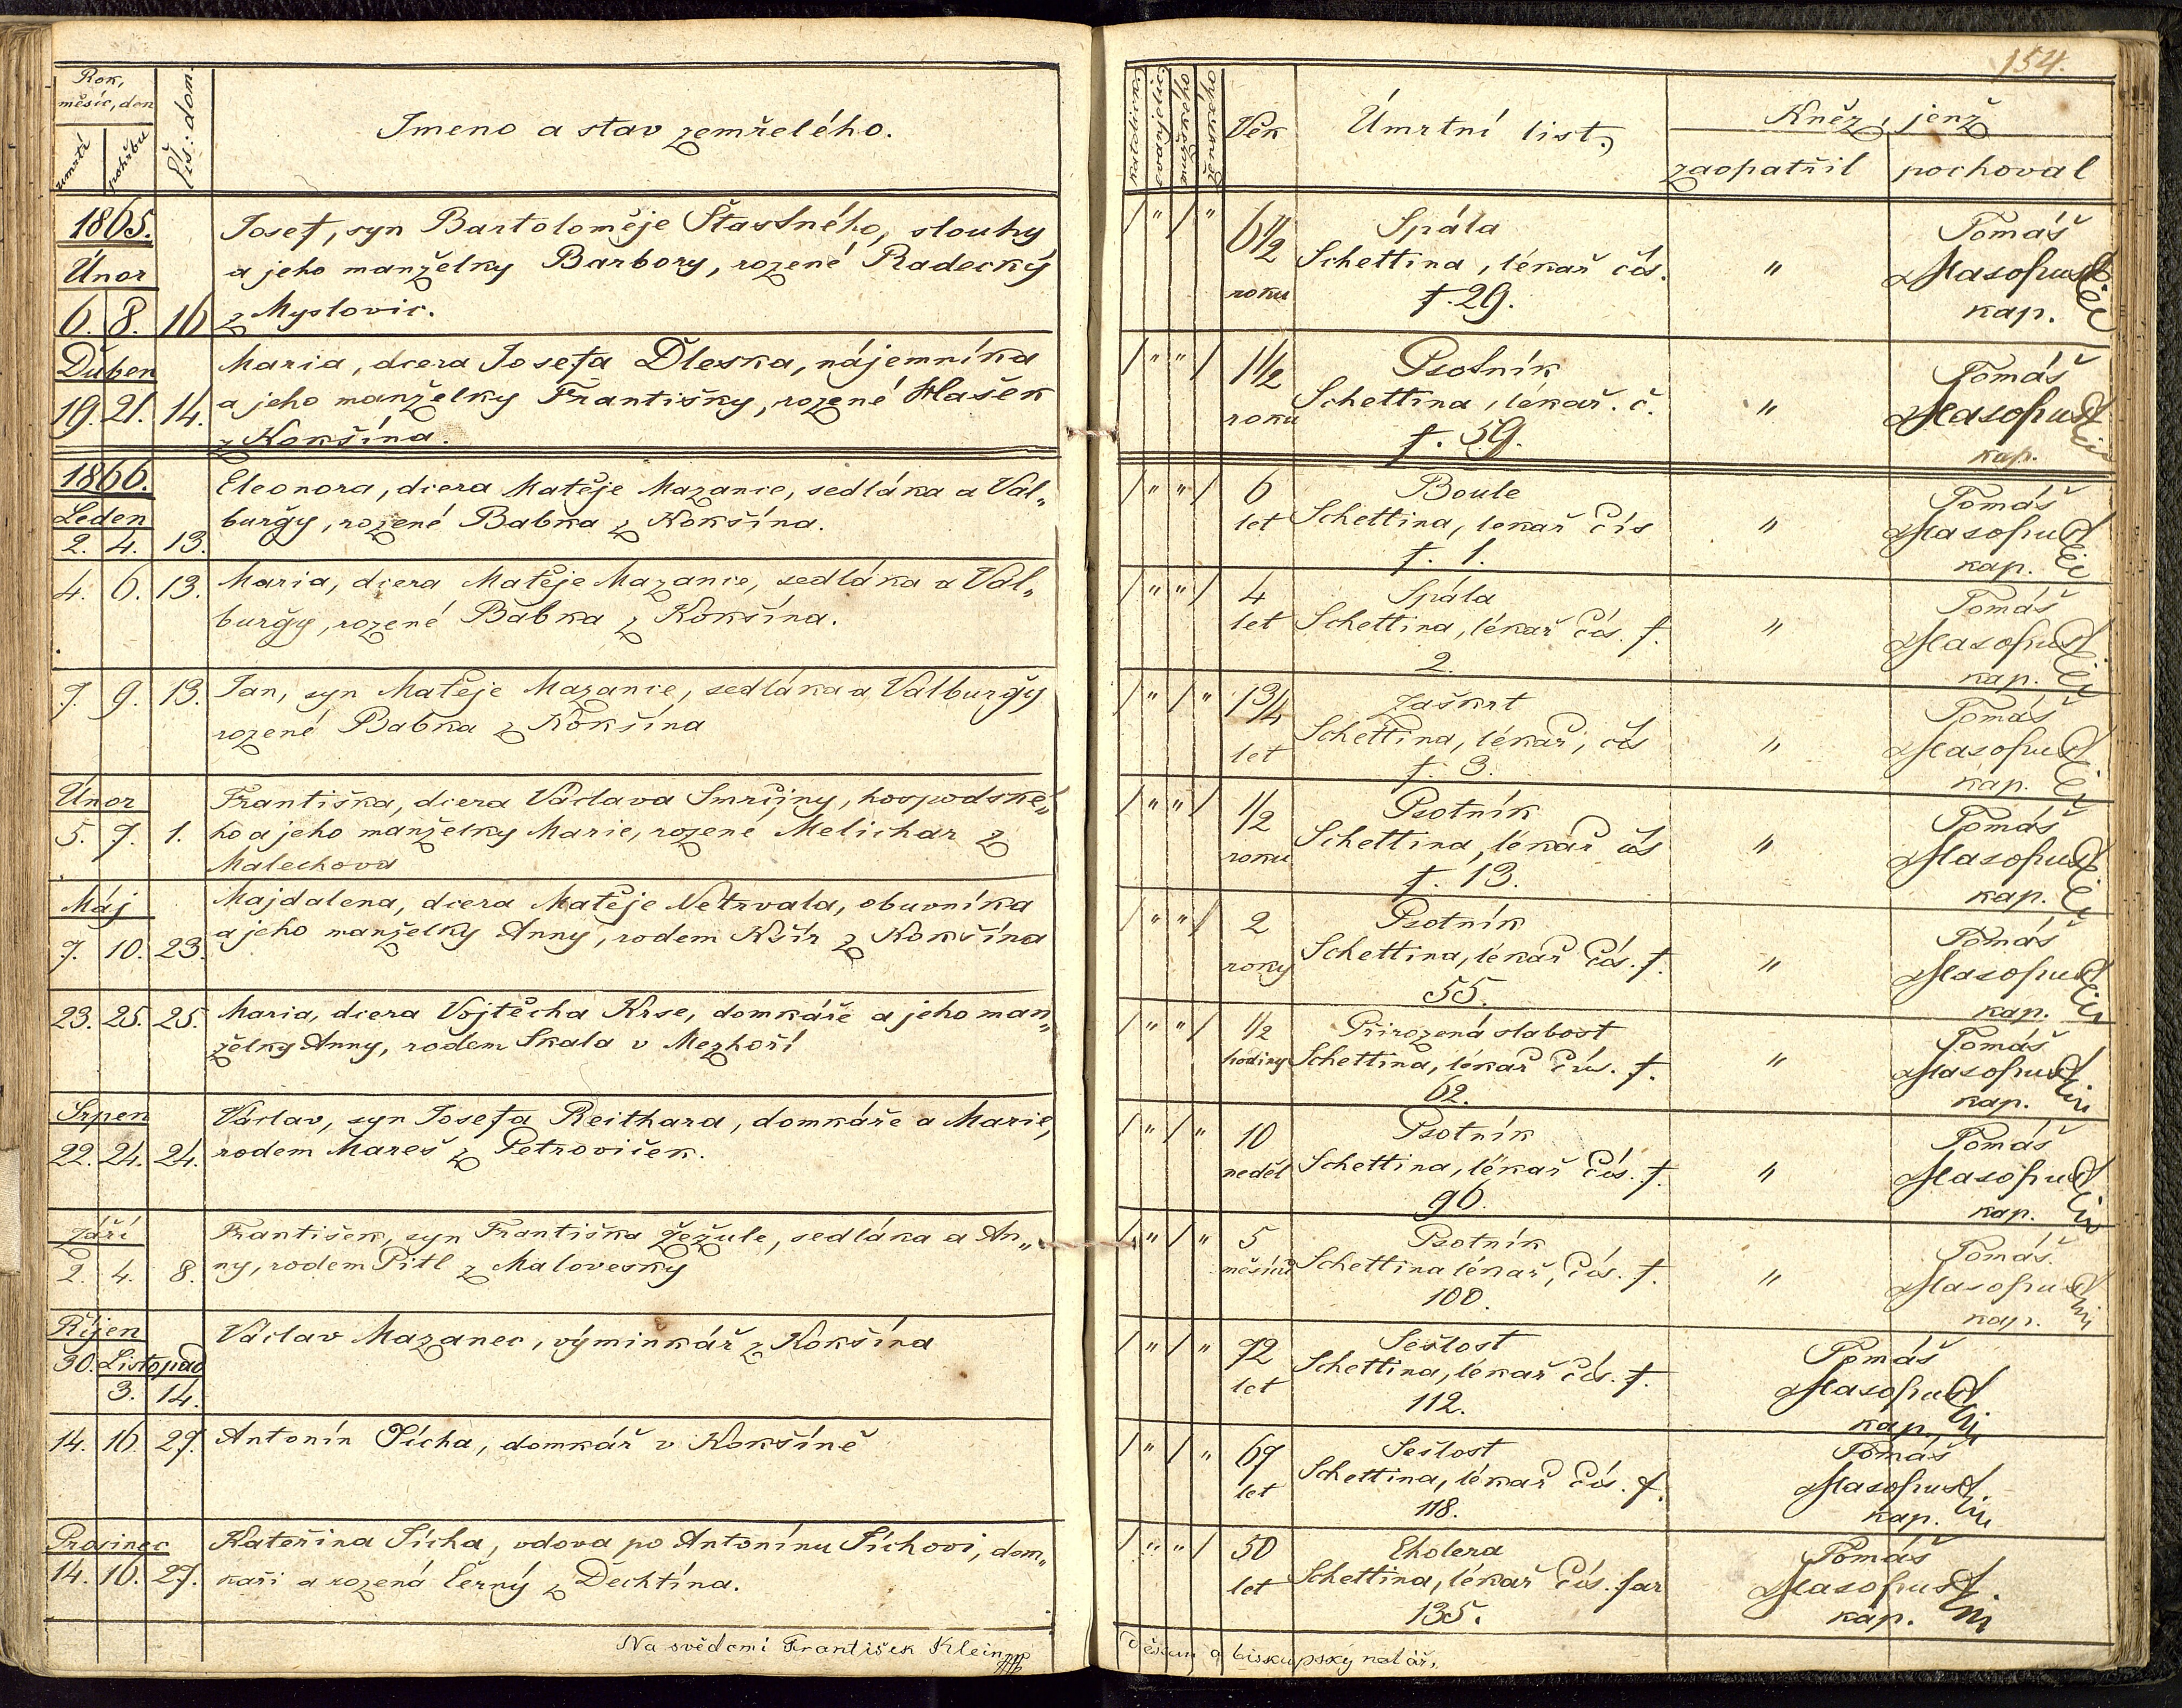 154.
Rok,
měsíc, den
umrtí
pohřbu
Čís: dom.
Jmeno a stav zemřelého.
katolické
evanjelic.
mužské
ženské
Věk
Úmrtní list.
Kněz, jenž
zaopatřil
pochoval
1865.
Únor
6. 8. 16
Josef, syn Bartoloměje Šťastného, slouhy
a jeho manželky Barbory, rozené Radecký
z Myslovic.
/ " / " 6 1/2 roku
Spála
Schettina, lékař čís.
f. 29.
"
Tomáš
Masopust
kap.
Duben
19. 21. 14.
Maria, dcera Josefa Dleska, nájemníka
a jeho manželky Františky, rozené Hlašek
z Kokšína.
/ " " / 1 1/2 roku
Psotník
Schettina, lékař. č.
f. 59.
"
Tomáš
Masopust
kap.
1866.
Leden
2. 4. 13.
Eleonora, dcera Matěje Mazance, sedláka a Val„
burgy, rozené Babka z Kokšína.
/ " " / 6 let
Boule
Schettina, lekař čís
f. 1.
"
Tomáš
Masopust
kap.
4. 6. 13.
Maria, dcera Matěje Mazance, sedláka a Val„
burgy, rozené Babka z Kokšína.
/ " " / 4 let
Spála
Schettina, lékař čís. f.
2.
"
Tomáš
Masopust
kap.
7. 9. 13.
Jan, syn Matěje Mazance, sedláka a Valburgy
rozené Babka z Kokšína
/ " / " 1 3/4 let
Zaškrt
Schettina, lékař, čís
f. 3.
"
Tomáš
Masopust
kap.
Únor
5. 7. 1.
Františka, dcera Václava Smrčiny, hospodské„
ho a jeho manželky Marie, rozené Melichar z
Malechova
/ " " / 1/2 roku
Psotník
Schettina, lékař čís
f. 13.
"
Tomáš
Masopust
kap.
Máj
7. 10. 23.
Majdalena, dcera Matěje Netrvala, obuvníka
a jeho manželky Anny, rodem Kšír z Kokšína
/ " " / 2 roky
Psotník
Schettina, lékař čís. f.
55.
"
Tomáš
Masopust
kap.
23. 25. 25.
Maria, dcera Vojtěcha Krse, domkáře a jeho man„
želky Anny, rodem Skala v Mezhoří
/ " " / 1/2 hodiny
Přirozená slabost
Schettina, lékař čís. f.
62.
"
Tomáš
Masopust
kap.
Srpen
22. 24. 24.
Václav, syn Josefa Reithara, domkáře a Marie,
rodem Mareš z Petroviček.
/ " / " 10 neděl
Psotník
Schettina, lékař čís. f.
96.
"
Tomáš
Masopust
kap.
Září
2. 4. 8.
František, syn Františka Žežule, sedláka a An„
ny, rodem Pitl z Malovesky
/ " / " 5 měsíců
Psotník
Schettina lékař, čís. f.
100.
"
Tomáš.
Masopust
kap.
Říjen
30. Listopad
3. 14.
Václav Mazanec, výminkář z Kokšína
/ " / " 72 let
Sešlost
Schettina, lékař čís. f.
112.
Tomáš
Masopust
kap.
14. 16. 27.
Antonín Pícha, domkář v Kokšíně
/ " / " 67 let
Sešlost
Schettina, lékař čís. f.
118.
Tomáš
Masopust
kap.
Prosinec
14. 16. 27.
Kateřina Pícha, vdova po Antonínu Píchovi, dom„
kaři a rozená Černý z Dechtína.
/ " " / 50 let
Cholera
Schettina, lékař čís. far
135.
Tomáš
Masopust
kap.
Na svědomí František Klein
Děkan a biskupský notář.